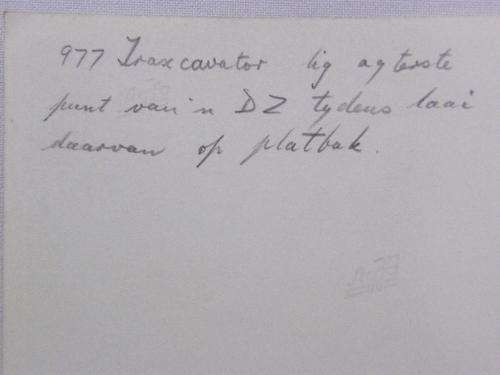 977 Traxcavator lig agterste
punt van 'n DZ tydens laai
daarvan op platbak.